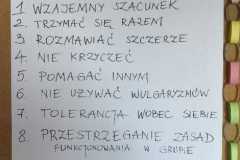 1 WZAJEMNY SZACUNEK
2. TRZYMAĆ SIĘ RAZEM
3 ROZMAWIAĆ SZCZERZE
4 NIE KRZYCZEĆ
5 POMAGAĆ INNYM
6 NIE UŻYWAĆ WULGARYZMÓW
7. TOLERANCJA WOBEC SIEBIE
8. PRZESTRZEGANIE ZASAD
FUNKCJONOWANIA W GRUPIE